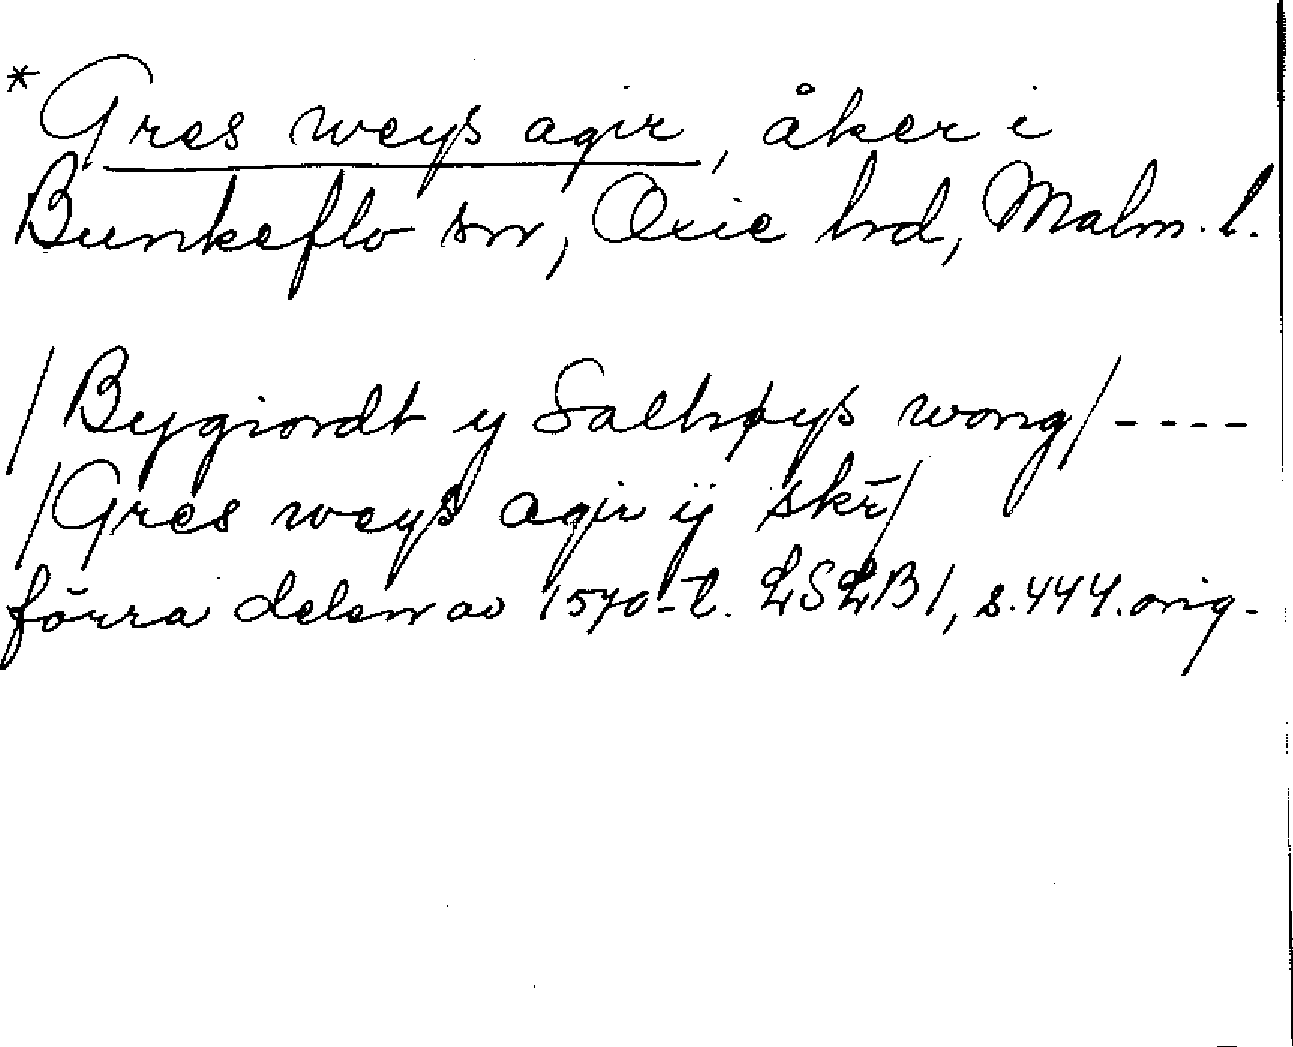 * Gres weys agir, åker i
Bunkeflo sn, Oxie hrd, Malm. l.
/Bygiordt y Salhøys wong/ ----
/Gres weys agir ij skr̄/
förra delen av 1570-t. LSLB1, s.444. orig.